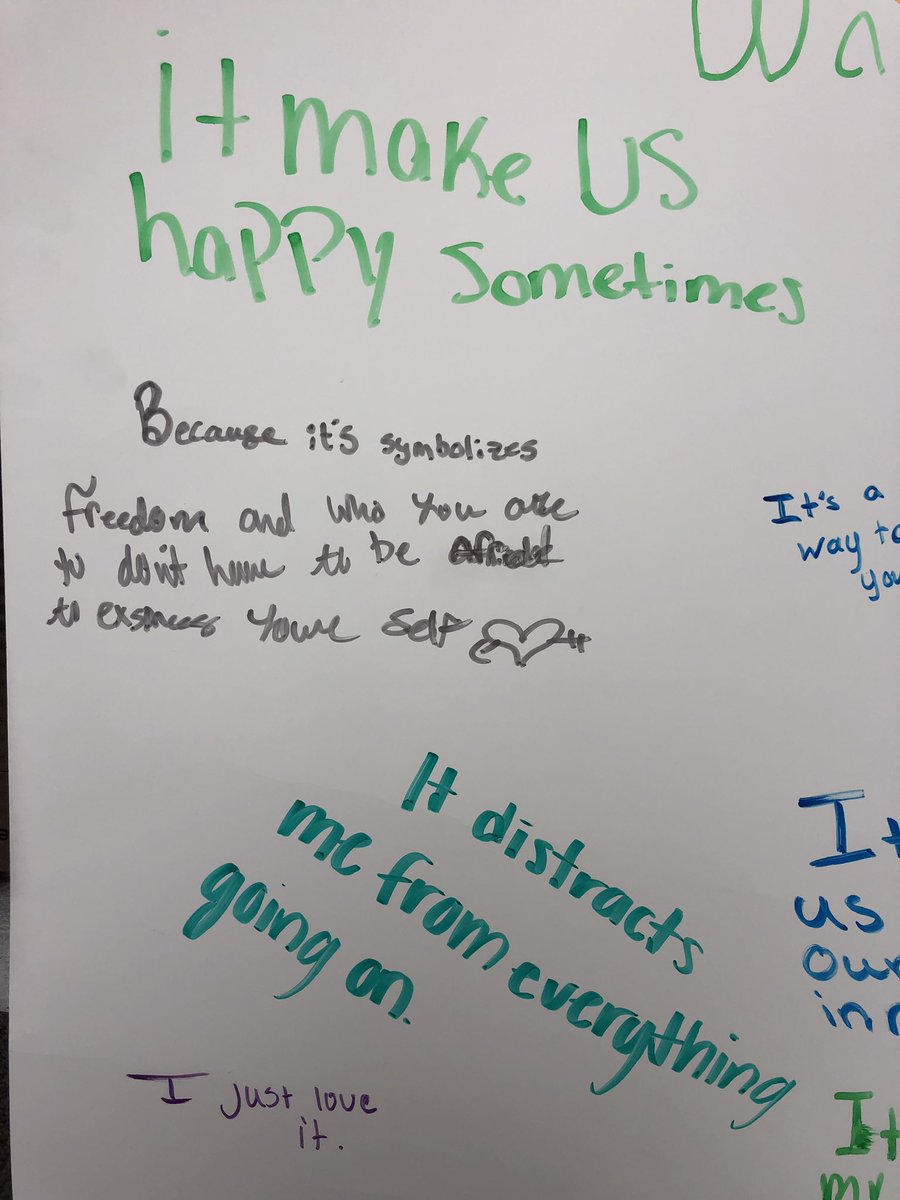 Wa
it make us
happy sometimes
Because it's symbolizes
Freedom and who you are
to don't have to be
to express youre self
It's a
way to
you
It distracts
me from everything
going on.
It
us
our
in
I just love
it.
It
my